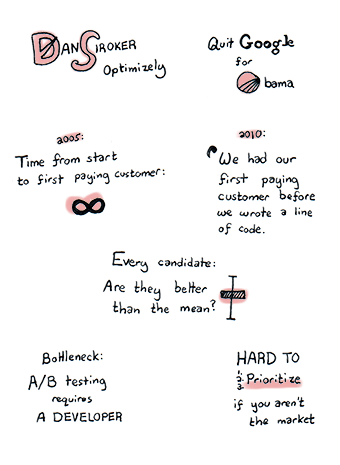 Dan Siroker
Optimizely
Quit Google
for
Obama
2005:
Time from start
to first paying customer:
∞
2010:
"We had our
first paying
customer before
we wrote a line
of code.
Every candidate:
Are they better
than the mean?
Bottleneck:
A/B testing
requires
A DEVELOPER
HARD TO
1 2 3 Prioritize
if you aren't
the market